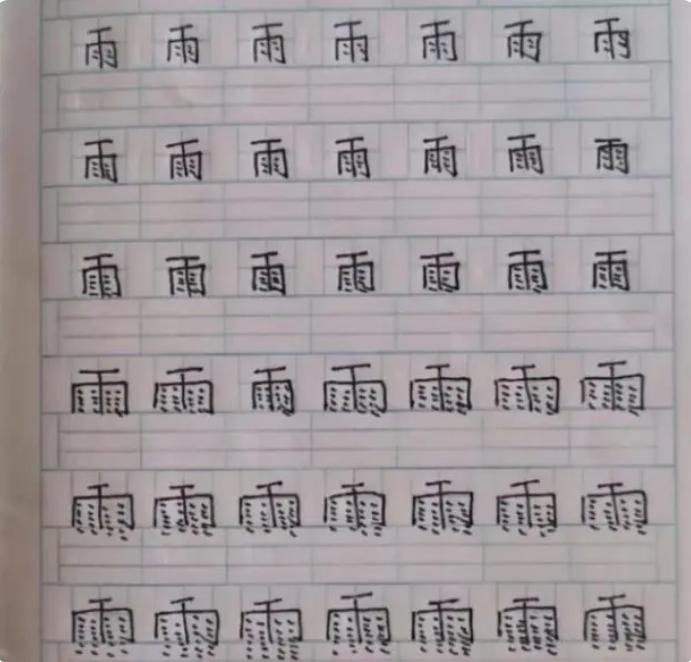 雨 雨 雨 雨 雨 雨 雨
雨 雨 雨 雨 雨 雨 雨
雨 雨 雨 雨 雨 雨 雨
雨 雨 雨 雨 雨 雨 雨
雨 雨 雨 雨 雨 雨 雨
雨 雨 雨 雨 雨 雨 雨